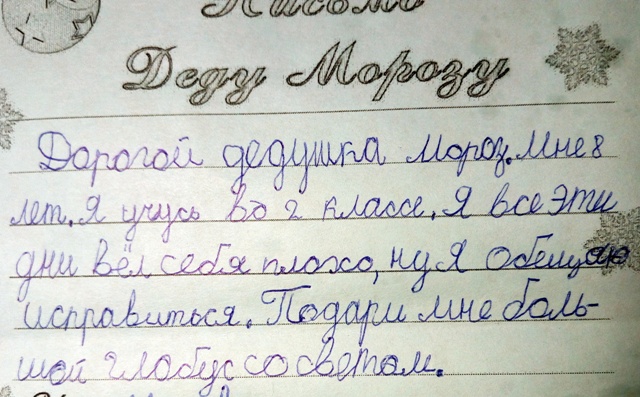 Письмо
Деду Морозу
Дорогой дедушка Мороз. Мне 8
лет. Я учусь во 2 классе. Я все эти
дни вёл себя плохо, ну я обещаю
исправиться. Подари мне боль-
шой глобус со светом.